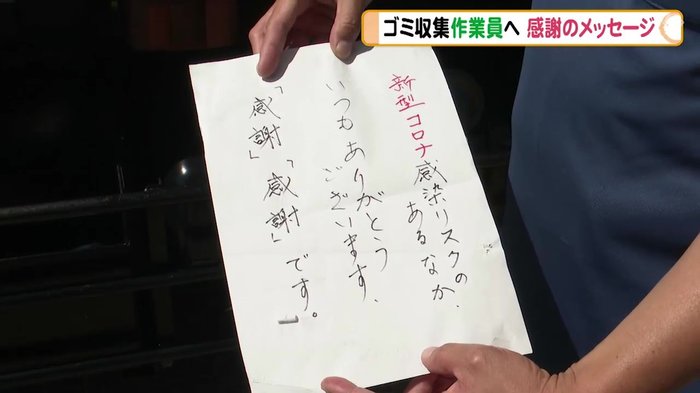 ゴミ収集作業員へ 感謝のメッセージ
新型コロナ感染リスクの、
あるなか、
いつもありがとう、
ございます、
「感謝」「感謝」です。